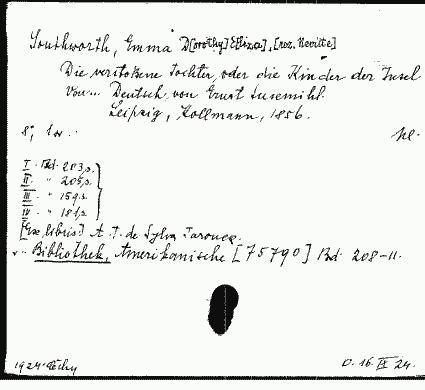 Southworth, Emma D[orothy] Eliza], [roz. Nevitte]
Die verstoßene Tochter oder die Kinder der Insel
von... Deutsch von Ernst Susemihl.
Leipzig, Kollmann, 1856.
8°, 1 w. nl.
I. Bd. 203, s.
II. " 205, s.
III. " 159, s.
IV " 181, s.
[Ex libris:] A. T. de Sylva Tarouca.
Bibliothek, Amerikanische [75790] Bd. 208-11.
1924 D. 16. IX 24.